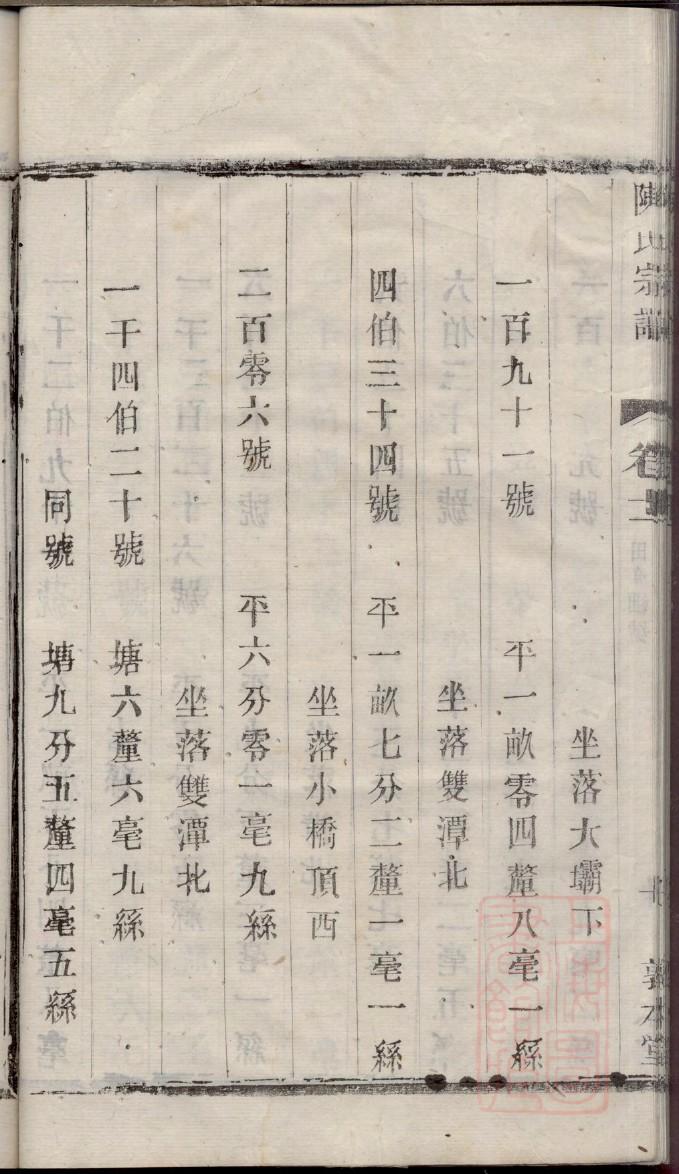 陳氏宗譜
坐落大壩下
一百九十一號 平一畝零四釐八毫一絲
坐落雙潭北
四伯三十四號 平一畝七分二釐一毫一絲
坐落小橋頂西
二百零六號 平六分零一毫九絲
坐落雙潭北
一千四伯二十號 塘六釐六毫九絲
同號 塘九分五釐四毫五絲